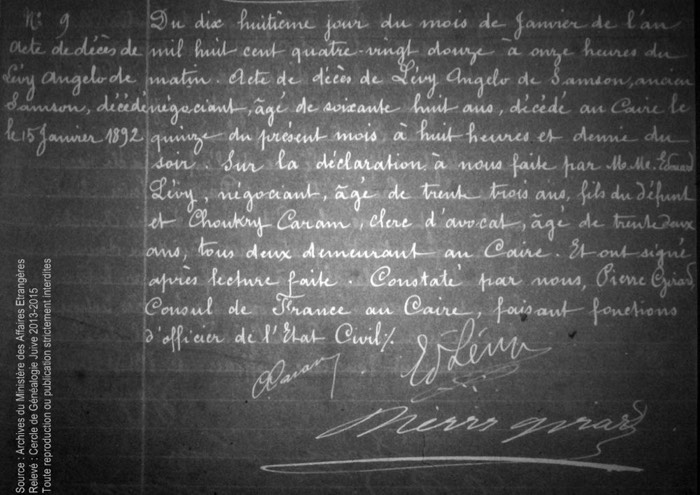 N° 9
Acte de décès de
Lévy Angelo de
Samson, décédé
le 15 Janvier 1892
Du dix huitième jour du mois de Janvier de l'an
mil huit cent quatre-vingt douze à onze heures du
matin. Acte de décès de Lévy Angelo de Samson, ancien
négociant, âgé de soixante huit ans, décédé au Caire le
quinze du présent mois à huit heures et demie du
soir. Sur la déclaration à nous faite par M.Me. Edouard
Lévy, négociant, âgé de trente trois ans, fils du défunt
et Choukry Caram, clerc d'avocat, âgé de trente deux
ans, tous deux demeurant au Caire. Et ont signé
après lecture faite. Constaté par nous, Pierre Girard
Consul de France au Caire, faisant fonctions
d'officier de l'Etat Civil ./.
CCaram
Ed Lévy
Pierre Girard
Source : Archives du Ministère des Affaires Etrangères
Relevé : Cercle de Généalogie Juive 2013-2015
Toute reproduction ou publication strictement interdites